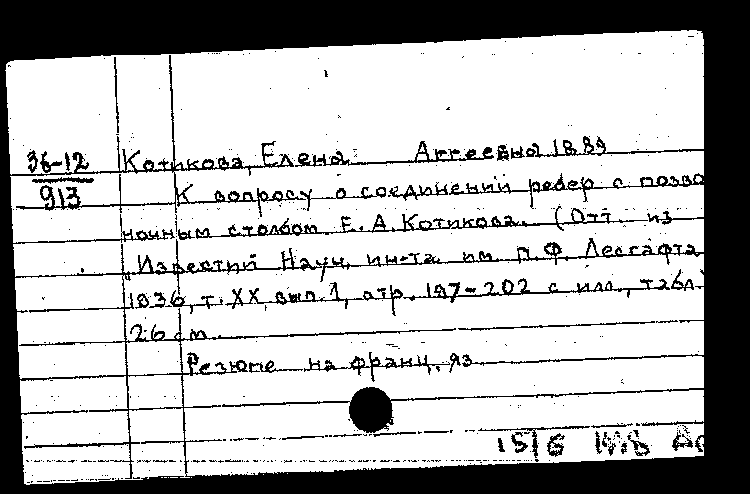 36-12
913
Котикова, Елена Аггеевна 1889
К вопросу о соединении ребер с позво
ночным столбом. Е. А. Котикова. (Отт. из
"Известий Науч. ин-та им. П.Ф. Лесгафта
1936, т. XX, вып. 1, стр. 187-202 с илл., табл.
26 см.
Резюме на франц. яз.